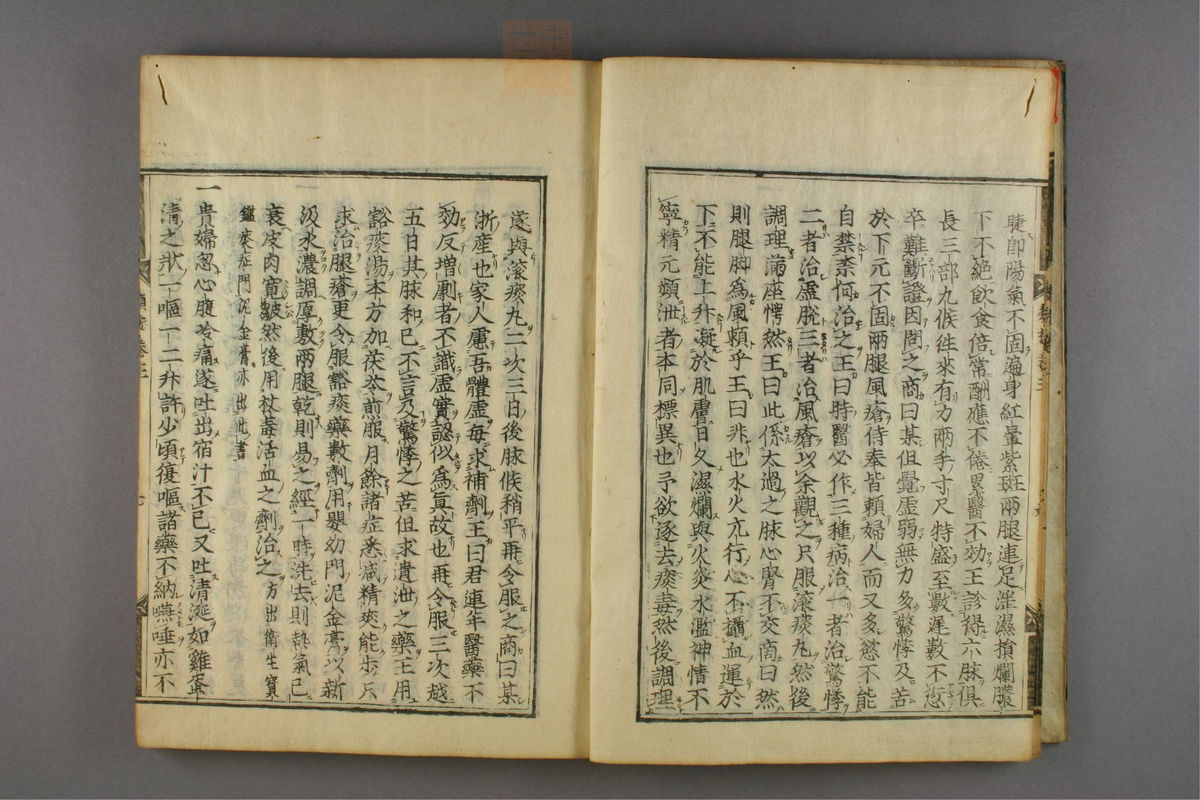 睫卽陽氣不固遍身紅暈紫斑兩腿連足淫濕損爛膿
下不絶飲食倍常酬應不倦累醫不効王診得六脉俱
長三部九候徃來有力兩手寸尺特盛至數遲數不愆
卒難斷證因問之商曰某但覺虛弱無力多驚悸及苦
於下元不固兩腿風瘡侍奉皆賴婦人而又多慾不能
自禁柰何治之王曰時醫必作三種病治一者治驚悸
二者治虛脫三者治風瘡以余觀之只服滚痰丸然後
調理滿座愕然王曰此係太過之脉心腎不交商曰然
則腿脚為風頼乎王曰非也水火亢行心不攝血運於
下不能上升凝於肌膚日久濕爛與火炎水濫神情不
寧精元頻泄者本同標異也予欲逐去痰毒然後調理
遂與滚痰丸二次三日後脉候稍平再令服之商曰某
浙産也家人慮吾體虛每求補劑王曰君連年醫藥不
効反增劇者不識虛實認似為真故也再令服三次越
五日其脉和已不言及驚悸之苦但求遺泄之藥王用
豁痰湯本方加茯苓煎服月餘諸症悉减精爽能步只
求治腿瘡更令服豁痰藥數劑用嬰幼門泥金膏以新
汲水濃調厚敷兩腿乾則易之經一時洗去則熱氣已
衰皮肉寛皺然後用杖毒活血之劑治之方出衛生寶
鑑痰症門泥金膏亦出此書
一貴婦忽心腹冷痛遂吐出宿汁不已又吐清涎如雞蛋
清之狀一嘔一二升許少頃復嘔諸藥不納嚥唾亦不